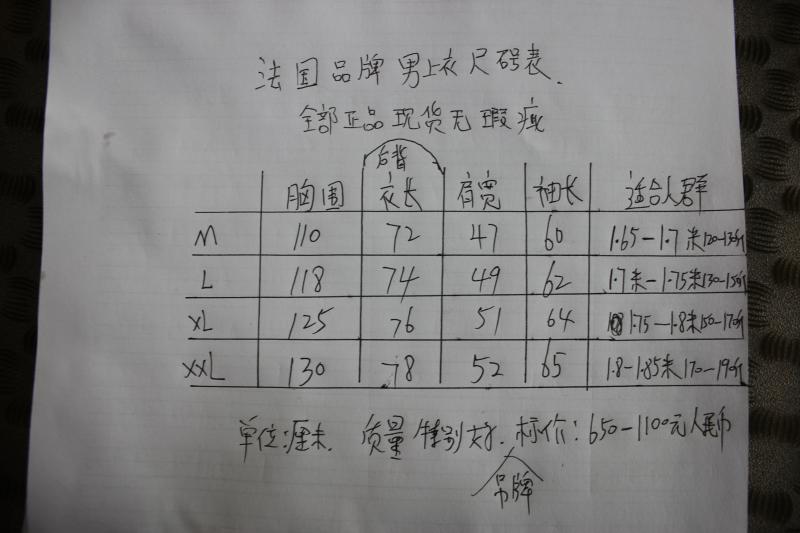 法国品牌男上衣尺码表.
全部正品现货无瑕疵
胸围 后背衣长 肩宽 袖长 适合人群
M 110 72 47 60 1.65-1.7米120-130斤
L 118 74 49 62 1.7米-1.75米130-150斤
XL 125 76 51 64 1.75-1.8米150-170斤
XXL 130 78 52 65 1.8-1.85米170-190斤
单位:厘米. 质量特别好. 吊牌标价:650-1100元人民币